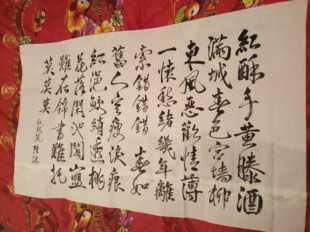 紅酥手黄滕酒
滿城春色宮墻柳
東風惡歡情薄
一懷愁緒幾年離
索錯錯錯 春如
舊人空瘦淚痕
紅浥鮫綃透桃
花落閑池閣山盟
雖在錦書難托
莫莫莫